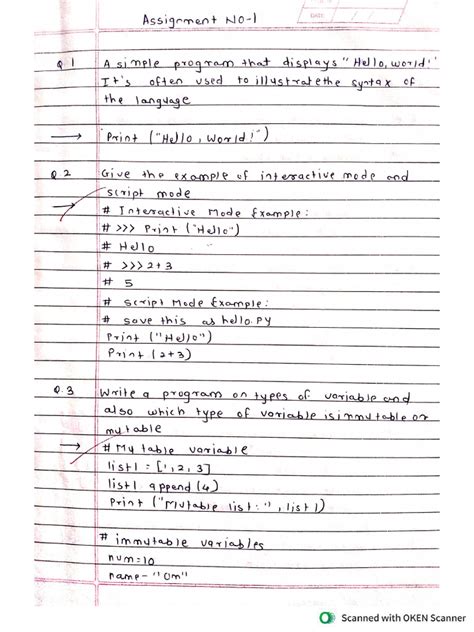 Assignment NO-1
DATE
Q 1 A simple program that displays "Hello, world!"
It's often used to illustrate the syntax of
the language
→ Print ("Hello, World!")
Q.2 Give the example of interactive mode and
script mode
→ # Interactive Mode Example:
# >>> Print ("Hello")
# Hello
# >>> 2+3
# 5
# script Mode Example:
# save this as hello.py
Print ("Hello")
Print (2+3)
Q.3 Write a program on types of variable and
also which type of variable is immutable or
mutable
→ # Mutable variable
list1 = [1, 2, 3]
list1 append (4)
Print ("Mutable list:", list1)
# immutable variables
num=10
name-"Om"
Scanned with OKEN Scanner